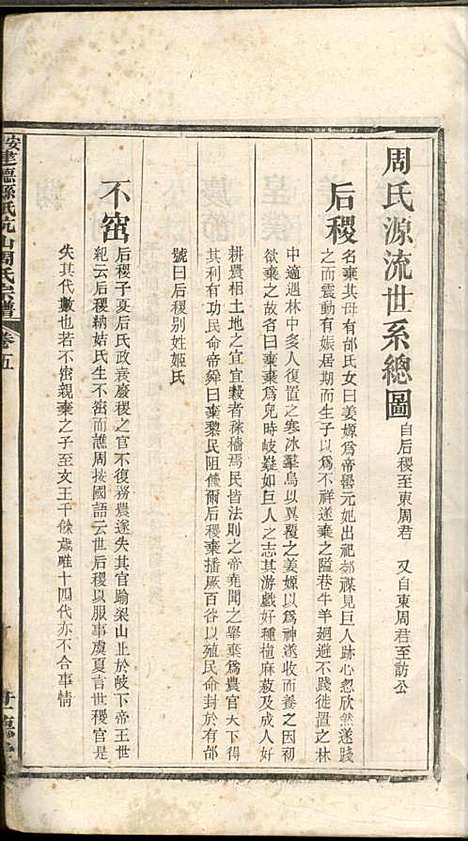 周氏源流世系總圖 自后稷至東周君 又自東周君至訪公
后稷 名棄其母有邰氏女曰姜嫄爲帝嚳元妃出祀郊禖見巨人跡心忽欣然遂踐
之而震動有娠居期而生子以爲不祥遂棄之隘巷牛羊廻避不踐徙置之林
中適遇林中多人復置之寒冰羣鳥以翼覆之姜嫄以爲神遂收而養之因初
欲棄之故名曰棄棄爲兒時岐嶷如巨人之志其游戲好種植麻菽及成人好
耕農相土地之宜宜穀者稼穡焉民皆法則之帝堯聞之舉棄爲農官天下得
其利有功民命帝舜曰棄黎民阻飢爾后稷棄播厥百谷以殖民命封於有邰
號曰后稷别姓姬氏
不窋 后稷子夏后氏政衰廢稷之官不復務農遂失其官踰梁山止於岐下帝王世
紀云后稷納姞氏生不窋而譙周按國語云世后稷以服事虞夏言世稷官是
失其代數也若不窋親棄之子至文王千餘歲唯十四代亦不合事情
建德縣紙坑山周氏宗譜
卷五